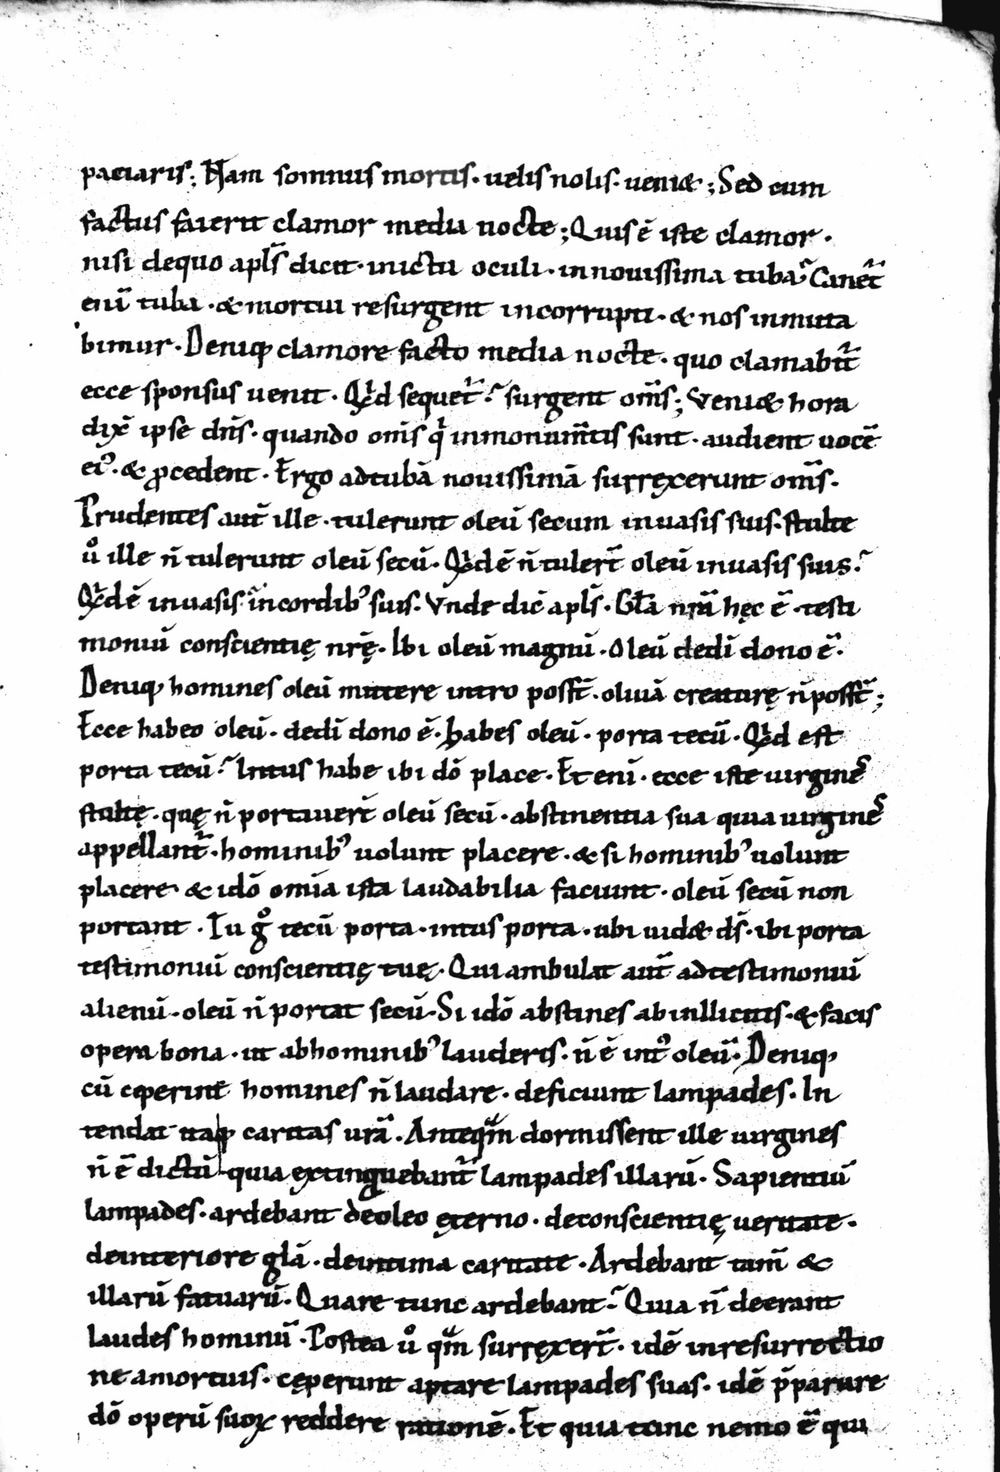 paciaris; Nam somnus mortis· uelis nolis· ueniæ; Sed cum
factus fuerit clamor media nocte; Quis ē iste clamor·
nisi dequo apl̄s dicit· inictu oculi· innouissima tuba; Canet᷑
enī tuba· & mortui resurgent incorrupti· & nos inmuta
bimur· Deniq; clamore facto media nocte· quo clamabit᷑
ecce sponsus uenit· Qͥd sequet᷑? surgent om̄s; Veni& hora
dix̄ ipse dn̄s· quando om̄s qͥ inmonum̄tis sunt· audient uocē
ei᷒· & ꝓcedent· Ergo adtubā nouissimā surrexerunt om̄s·
Prudentes aut̄ ille· tulerunt oleū secum inuasis suis· stulte
uͦ ille n̄ tulerunt oleū secū· Qͥd ē n̄ tuler̄t oleū inuasis suis?
Qͥd ē inuasis? incordib᷒ suis· Vnde dic̄ apl̄s· Gl̄a nr̄a hęc ē· testi
moniū conscientię nr̄ę· Ibi oleū magnū· Oleū dedī dono ē·
Deniq; homines oleū mittere intro poss̄t· oliuā creaturę n̄ poss̄t;
Ecce habeo oleū· dedī dono ē· habes oleū· porta tecū· Qͥd est
porta tecū? Intus habe ibi dō place· Et enī· ecce iste uirgines
stultę· quę n̄ portauer̄t oleū secū· abstinentia sua quia uirgines
appellant᷑· hominib᷒ uolunt placere· & si hominib᷒ uolunt
placere· & idō omīa ista laudabilia faciunt· oleū secū non
portant· Tu gͦ tecū porta· intus porta· ubi uid& ds̄· ibi porta
testimoniū conscientię tuę· Qui ambulat aut̄ adtestimoniū
alienū· oleū n̄ portat secū· Si idō abstines abinlicitis· & facis
opera bona· ut abhominib᷒ lauderis· n̄ ē int᷒ oleū· Deniq;
cū cęperint homines n̄ laudare· deficiunt lampades· In
tendat itaq; caritas ur̄a· Anteqm̄ dormissent ille uirgines
n̄ ē dictū quia extinguebant᷑ lampades illarū· Sapientiū
lampades· ardebant deoleo ęterno· deconscientię ueritate·
deinteriore gl̄a· deintima caritate· Ardebant tam̄ &
illarū fatuarū· Quare tunc ardebant? Quia n̄ deerant
laudes hominū· Postea uͦ qm̄ surrexer̄t· idē inresurrectio
ne amortuis· cęperunt aptare lampades suas· idē p̄parare
dō operū suoꝝ reddere rationē· Et quia tunc nemo ē qui